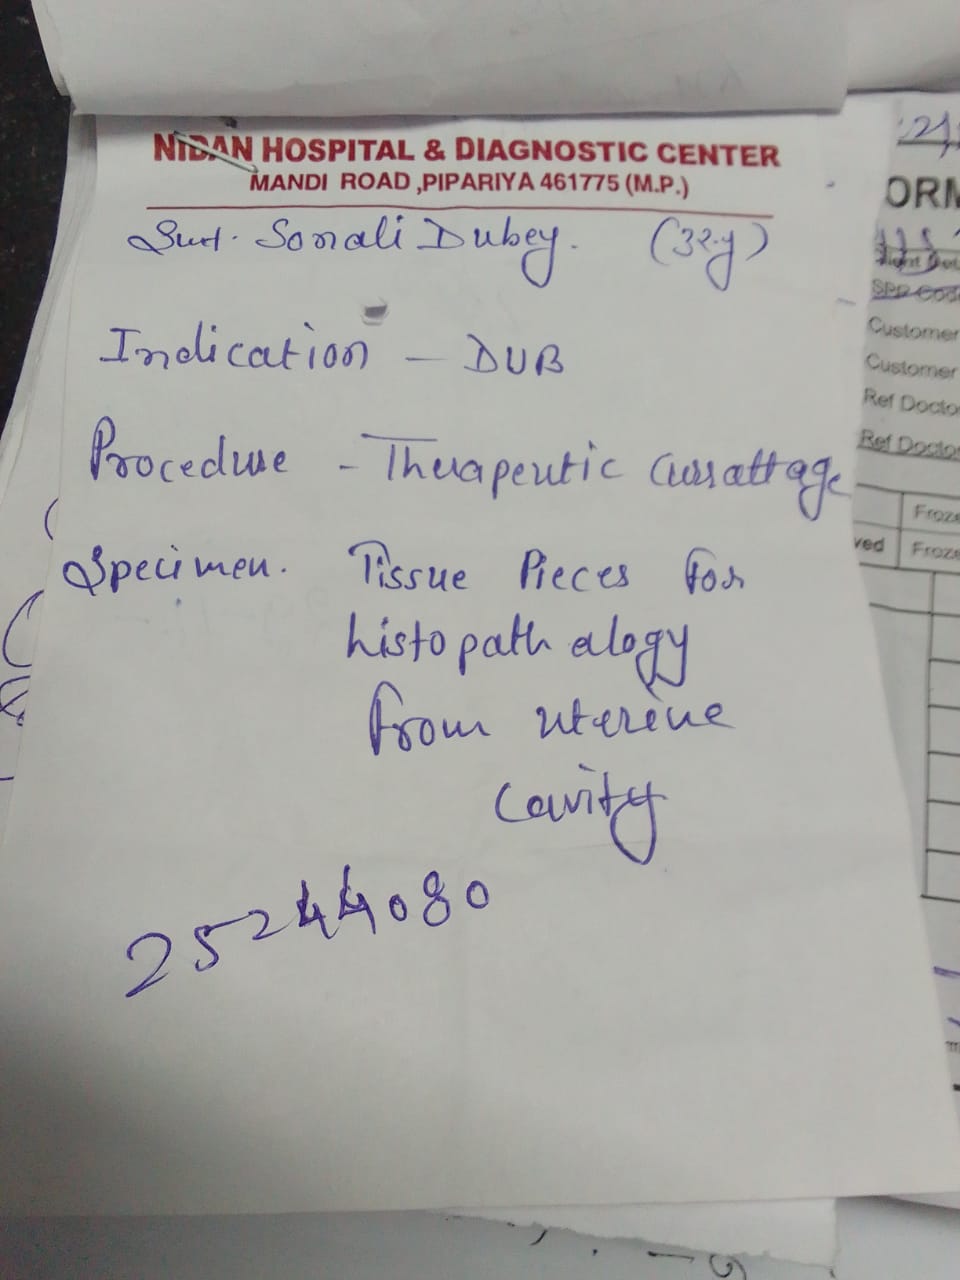 NIDAN HOSPITAL & DIAGNOSTIC CENTER
MANDI ROAD ,PIPARIYA 461775 (M.P.)
Smt. Sonali Dubey. (32y)
Indication – DUB
Procedure – Therapeutic Currattage
Specimen. Tissue Pieces for
histopathalogy
from uterine
cavity
25244080
ORM
SPP Code
Customer
Customer
Ref Docto
Ref Docto
Froze
ved Froze